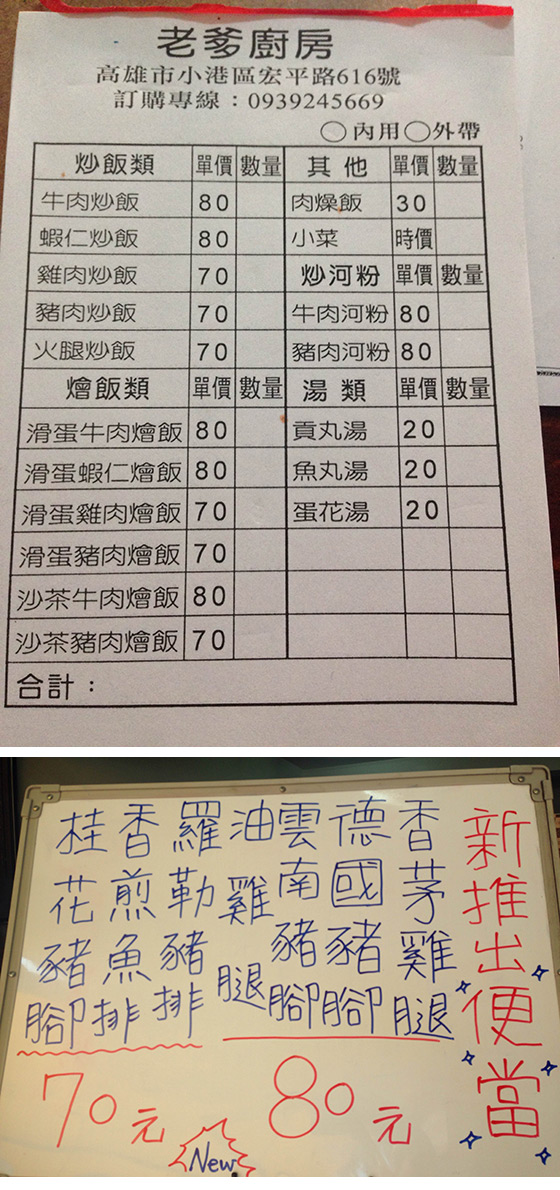 老爹廚房
高雄市小港區宏平路616號
訂購專線：0939245669
○內用○外帶
炒飯類 單價 數量 其他 單價 數量
牛肉炒飯 80 肉燥飯 30
蝦仁炒飯 80 小菜 時價
雞肉炒飯 70 炒河粉 單價 數量
豬肉炒飯 70 牛肉河粉 80
火腿炒飯 70 豬肉河粉 80
燴飯類 單價 數量 湯類 單價 數量
滑蛋牛肉燴飯 80 貢丸湯 20
滑蛋蝦仁燴飯 80 魚丸湯 20
滑蛋雞肉燴飯 70 蛋花湯 20
滑蛋豬肉燴飯 70
沙茶牛肉燴飯 80
沙茶豬肉燴飯 70
合計：
新推出便當
香茅雞腿
德國豬腳
雲南豬腳
油雞腿
80元
羅勒豬排
香煎魚排
桂花豬腳
70元
New